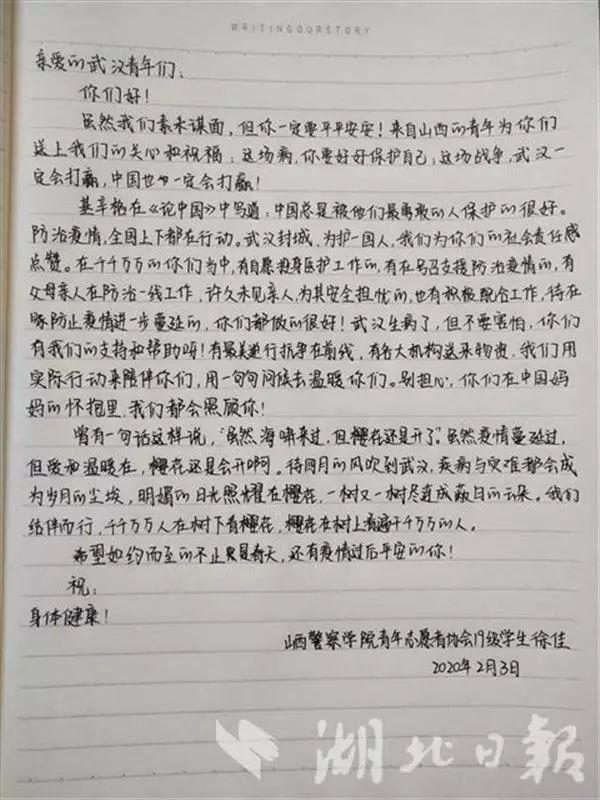 WRITINGOURSTORY
亲爱的武汉青年们:
你们好!
虽然我们素未谋面,但你一定要平平安安!来自山西的青年为你们
送上我们的关心和祝福:这场病,你要好好保护自己;这场战争,武汉一
定会打赢,中国也一定会打赢!
基辛格在《论中国》中写道:中国总是被他们最勇敢的人保护的很好。
防治疫情,全国上下都在行动。武汉封城,为护一国人,我们为你们的社会责任感
点赞。在千千万万的你们当中,有自愿投身医护工作的,有在号召支援防治疫情的,有
父母亲人在防治一线工作,许久未见亲人,为其安全担忧的,也有积极配合工作,待在
家防止疫情进一步蔓延的,你们都做的很好!武汉生病了,但不要害怕,你们
有我们的支持和帮助呀!有最美逆行抗争在前线,有各大机构送来物资,我们用
实际行动来陪伴你们,用一句句问候去温暖你们。别担心,你们在中国妈
妈的怀抱里,我们都会照顾你!
曾有一句话这样说,"虽然海啸来过,但樱花还是开了"。虽然疫情蔓延过,
但爱和温暖在,樱花还是会开啊。待四月的风吹到武汉,疾病与灾难都会成
为岁月的尘埃,明媚的日光照耀在樱花,一树又一树尽连成蔽日的云朵。我们
结伴而行,千千万万人在树下看樱花,樱花在树上看遍千千万万的人。
希望如约而至的不止是春天,还有疫情过后平安的你!
祝:
身体健康!
山西警察学院青年志愿者协会19级学生徐佳
2020年2月3日
湖北日報